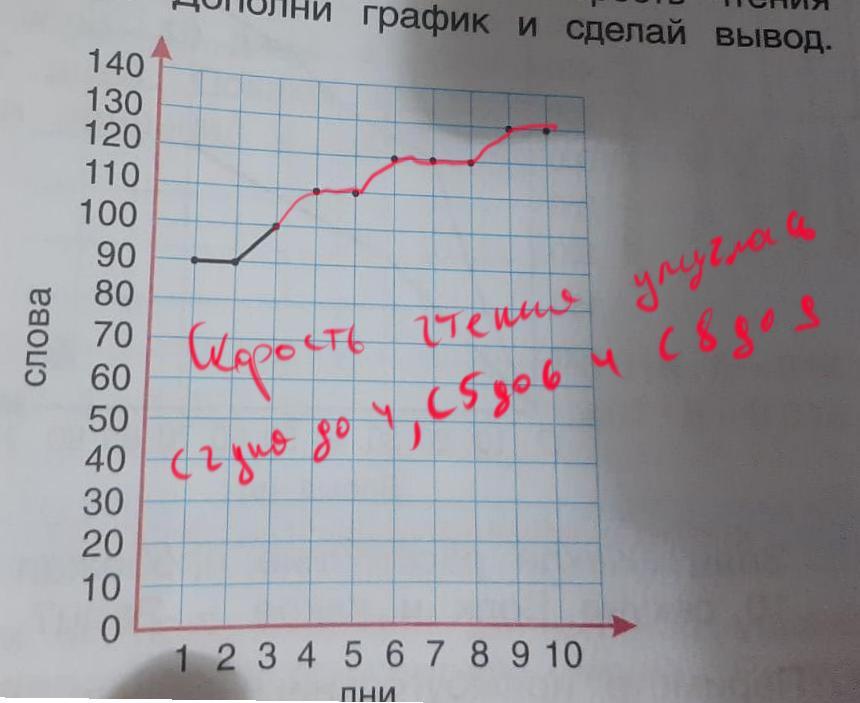 Дополни график и сделай вывод.
140
130
120
110
100
90
80
70
60
50
40
30
20
10
0
слова
1 2 3 4 5 6 7 8 9 10
дни
Скорость чтения
с 2 дня до 4, с 5 до 6 и с 8 до 9